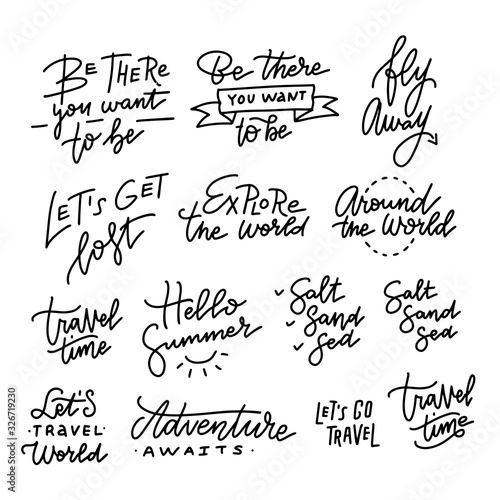 Be there
you want
to be
Be there
you want
to be
fly
away
Let's get
lost
Explore
the world
Around
the World
travel
time
Hello
Summer
Salt
Sand
Sea
Salt
Sand
Sea
Let's
TRAVEL
World
Adventure
AWAITS
LET'S GO
TRAVEL
travel
time
Adobe Stock | #326719230